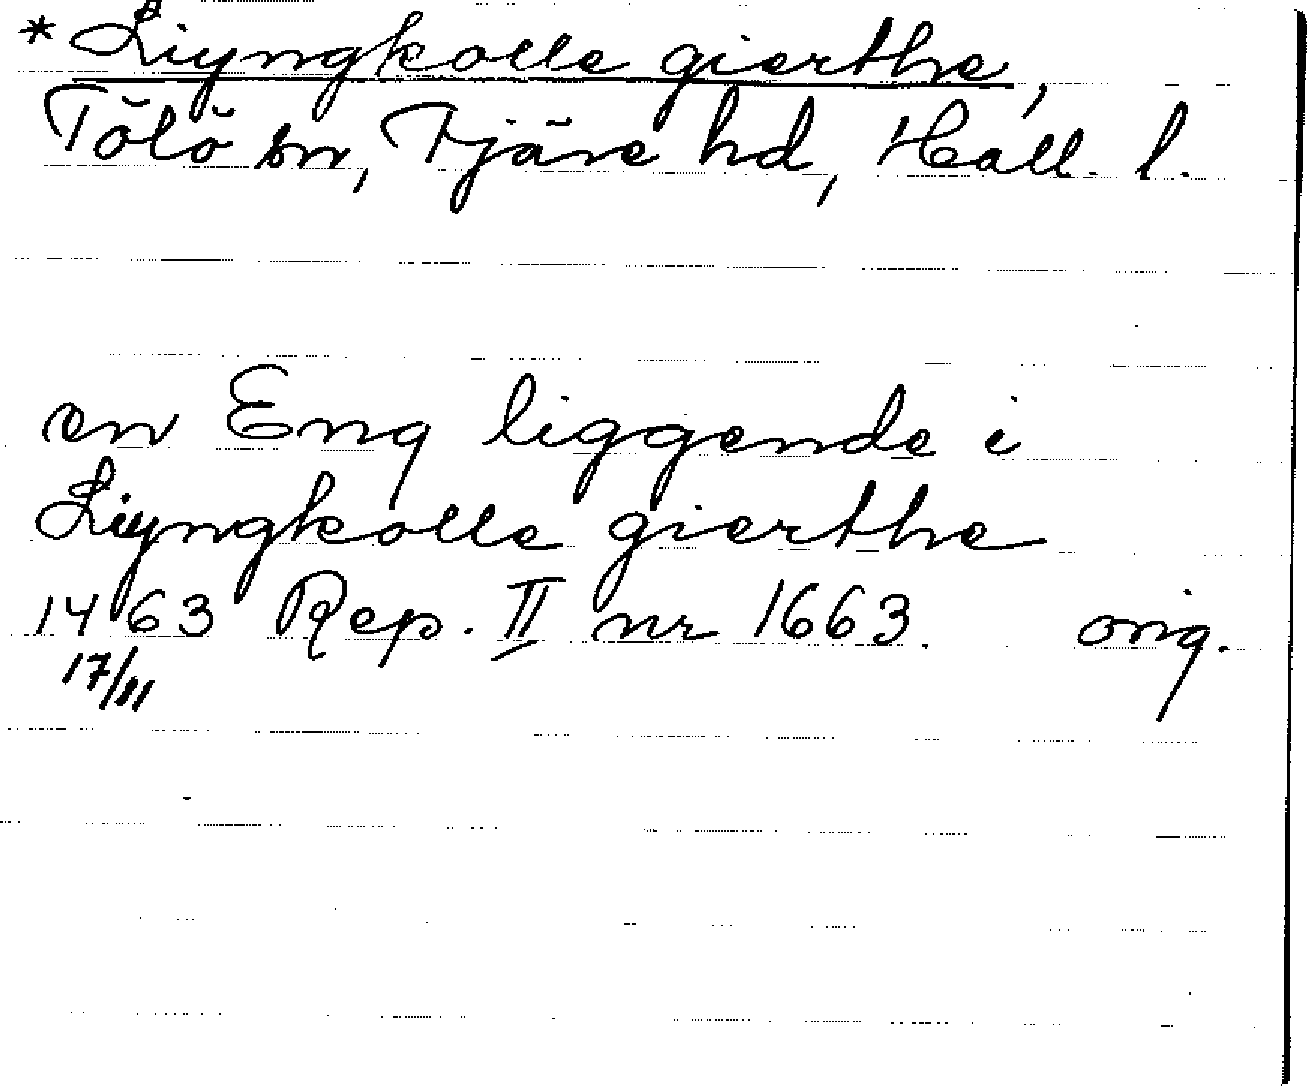 * Liyngkolle gierthe,
Tölö sn, Fjäre hd, Hall. l.
en Eng liggende i
Liyngkolle gierthe
1463 Rep. II nr 1663. orig.
17/11